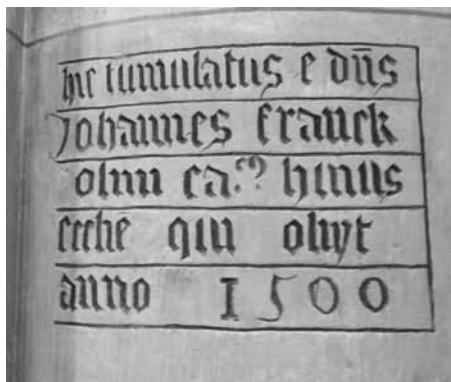 hic tumulatus e dn̄s
Johannes franck
olim ca.ꝰ huius
ecclīe qui obiyt
anno 1500